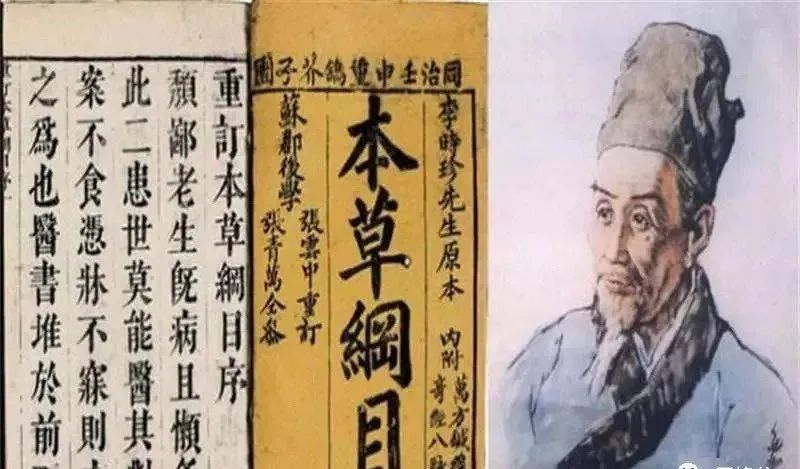 重訂本草綱目序
鄙老生旣病且懶
此二患世莫能醫其
案不食憑牀不寐則
之爲也醫書堆於前
同治壬申重鐫芥子園
李時珍先生原本
内附
萬方鍼
奇經八
本草綱目
張雲中重訂
張青萬仝參
蘇郡後學